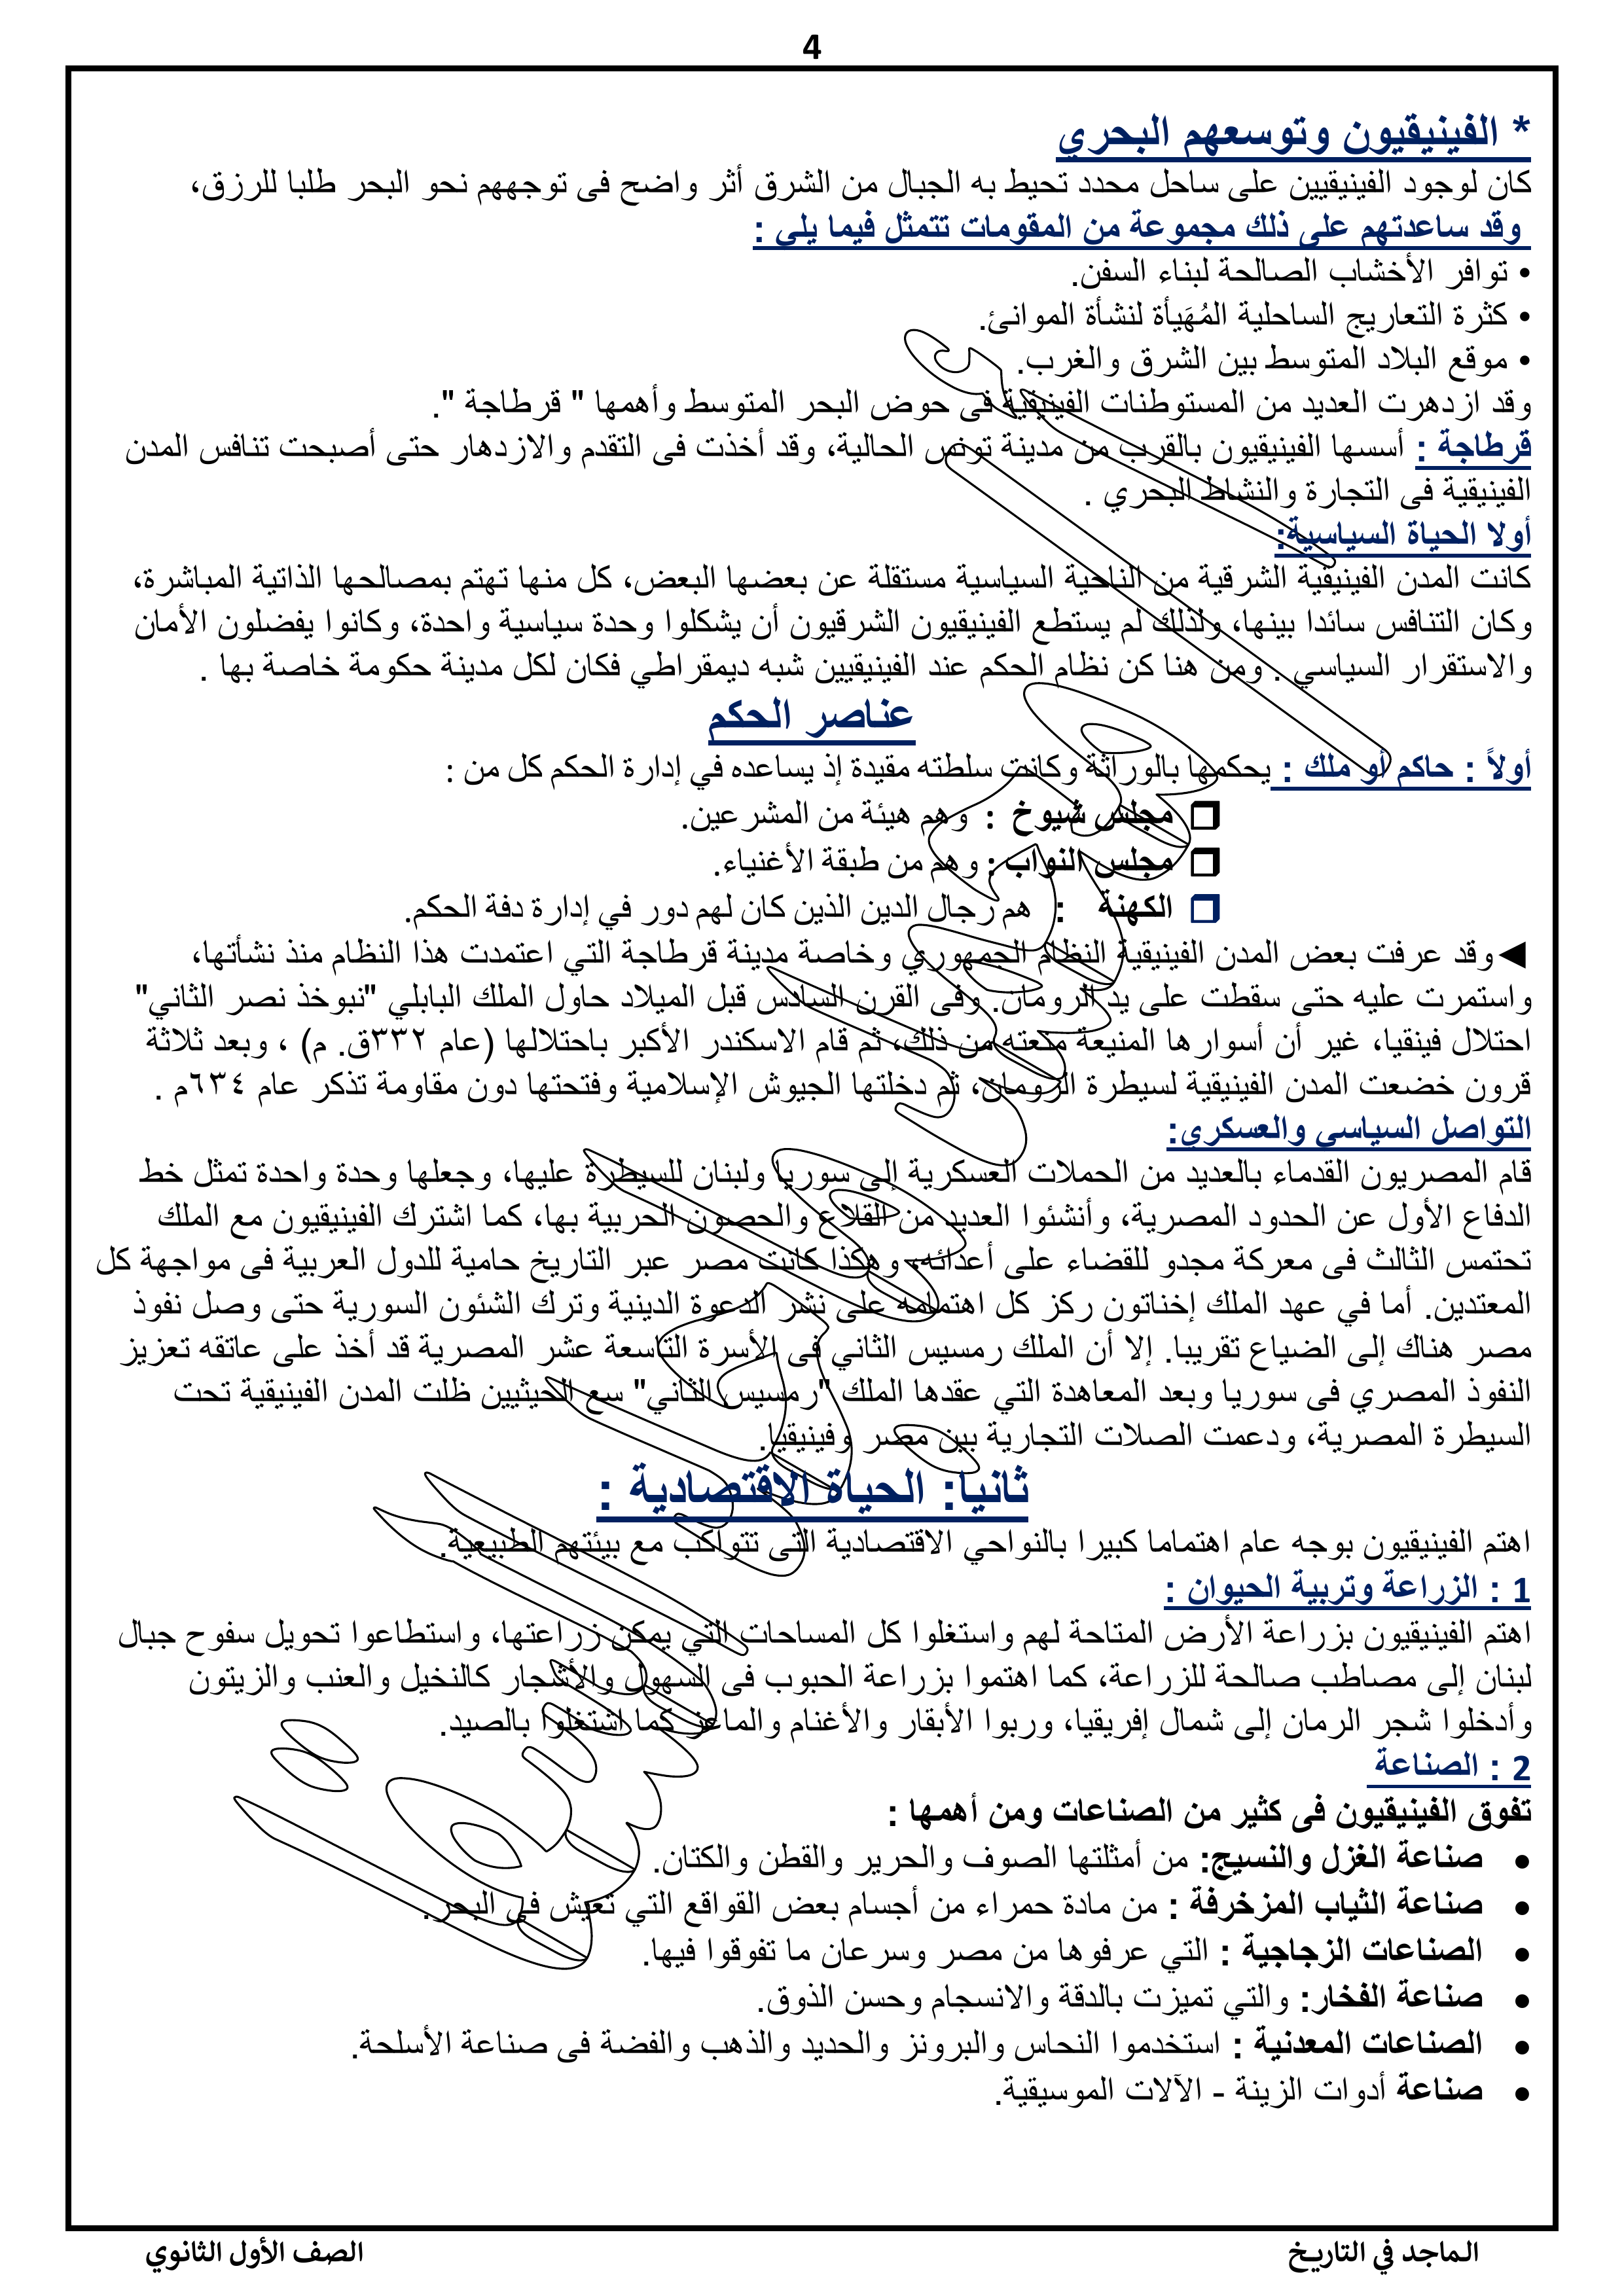 4
* الفينيقيون وتوسعهم البحري
كان لوجود الفينيقيين على ساحل محدد تحيط به الجبال من الشرق أثر واضح فى توجههم نحو البحر طلبا للرزق،
وقد ساعدتهم على ذلك مجموعة من المقومات تتمثل فيما يلى :
• توافر الأخشاب الصالحة لبناء السفن.
• كثرة التعاريج الساحلية المُهَيأة لنشأة الموانئ.
• موقع البلاد المتوسط بين الشرق والغرب.
وقد ازدهرت العديد من المستوطنات الفينيقية فى حوض البحر المتوسط وأهمها " قرطاجة ".
قرطاجة : أسسها الفينيقيون بالقرب من مدينة تونس الحالية، وقد أخذت فى التقدم والازدهار حتى أصبحت تنافس المدن
الفينيقية فى التجارة والنشاط البحري .
أولا الحياة السياسية:
كانت المدن الفينيقية الشرقية من الناحية السياسية مستقلة عن بعضها البعض، كل منها تهتم بمصالحها الذاتية المباشرة،
وكان التنافس سائدا بينها، ولذلك لم يستطع الفينيقيون الشرقيون أن يشكلوا وحدة سياسية واحدة، وكانوا يفضلون الأمان
والاستقرار السياسي . ومن هنا كن نظام الحكم عند الفينيقيين شبه ديمقراطي فكان لكل مدينة حكومة خاصة بها .
عناصر الحكم
أولاً : حاكم أو ملك : يحكمها بالوراثة وكانت سلطته مقيدة إذ يساعده في إدارة الحكم كل من :
❒ مجلس شيوخ : وهم هيئة من المشرعين.
❒ مجلس النواب : وهم من طبقة الأغنياء.
❒ الكهنة : هم رجال الدين الذين كان لهم دور في إدارة دفة الحكم.
◄وقد عرفت بعض المدن الفينيقية النظام الجمهوري وخاصة مدينة قرطاجة التي اعتمدت هذا النظام منذ نشأتها،
واستمرت عليه حتى سقطت على يد الرومان. وفى القرن السادس قبل الميلاد حاول الملك البابلي "نبوخذ نصر الثاني"
احتلال فينقيا، غير أن أسوارها المنيعة منعته من ذلك، ثم قام الاسكندر الأكبر باحتلالها (عام ٣٣٢ق. م) ، وبعد ثلاثة
قرون خضعت المدن الفينيقية لسيطرة الرومان، ثم دخلتها الجيوش الإسلامية وفتحتها دون مقاومة تذكر عام ٦٣٤م .
التواصل السياسى والعسكرى:
قام المصريون القدماء بالعديد من الحملات العسكرية إلى سوريا ولبنان للسيطرة عليها، وجعلها وحدة واحدة تمثل خط
الدفاع الأول عن الحدود المصرية، وأنشئوا العديد من القلاع والحصون الحربية بها، كما اشترك الفينيقيون مع الملك
تحتمس الثالث فى معركة مجدو للقضاء على أعدائه، وهكذا كانت مصر عبر التاريخ حامية للدول العربية فى مواجهة كل
المعتدين. أما في عهد الملك إخناتون ركز كل اهتمامه على نشر الدعوة الدينية وترك الشئون السورية حتى وصل نفوذ
مصر هناك إلى الضياع تقريبا. إلا أن الملك رمسيس الثاني فى الأسرة التاسعة عشر المصرية قد أخذ على عاتقه تعزيز
النفوذ المصري فى سوريا وبعد المعاهدة التي عقدها الملك "رمسيس الثاني" سع الحيثيين ظلت المدن الفينيقية تحت
السيطرة المصرية، ودعمت الصلات التجارية بين مصر وفينيقيا.
ثانيا: الحياة الاقتصادية :
اهتم الفينيقيون بوجه عام اهتماما كبيرا بالنواحي الاقتصادية التى تتواكب مع بيئتهم الطبيعية.
1 : الزراعة وتربية الحيوان :
اهتم الفينيقيون بزراعة الأرض المتاحة لهم واستغلوا كل المساحات التي يمكن زراعتها، واستطاعوا تحويل سفوح جبال
لبنان إلى مصاطب صالحة للزراعة، كما اهتموا بزراعة الحبوب فى السهول والأشجار كالنخيل والعنب والزيتون
وأدخلوا شجر الرمان إلى شمال إفريقيا، وربوا الأبقار والأغنام والماعز كما اشتغلوا بالصيد.
2 : الصناعة
تفوق الفينيقيون فى كثير من الصناعات ومن أهمها :
• صناعة الغزل والنسيج: من أمثلتها الصوف والحرير والقطن والكتان.
• صناعة الثياب المزخرفة : من مادة حمراء من أجسام بعض القواقع التي تعيش فى البحر.
• الصناعات الزجاجية : التي عرفوها من مصر وسرعان ما تفوقوا فيها.
• صناعة الفخار: والتي تميزت بالدقة والانسجام وحسن الذوق.
• الصناعات المعدنية : استخدموا النحاس والبرونز والحديد والذهب والفضة فى صناعة الأسلحة.
• صناعة أدوات الزينة - الآلات الموسيقية.
الماجد في التاريخ
الصف الأول الثانوي